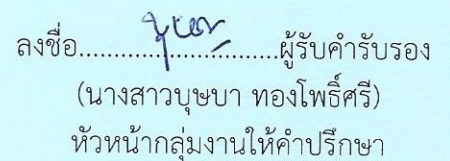 ลงชื่อ.............................ผู้รับคำรับรอง
(นางสาวบุษบา ทองโพธิ์ศรี)
หัวหน้ากลุ่มงานให้คำปรึกษา